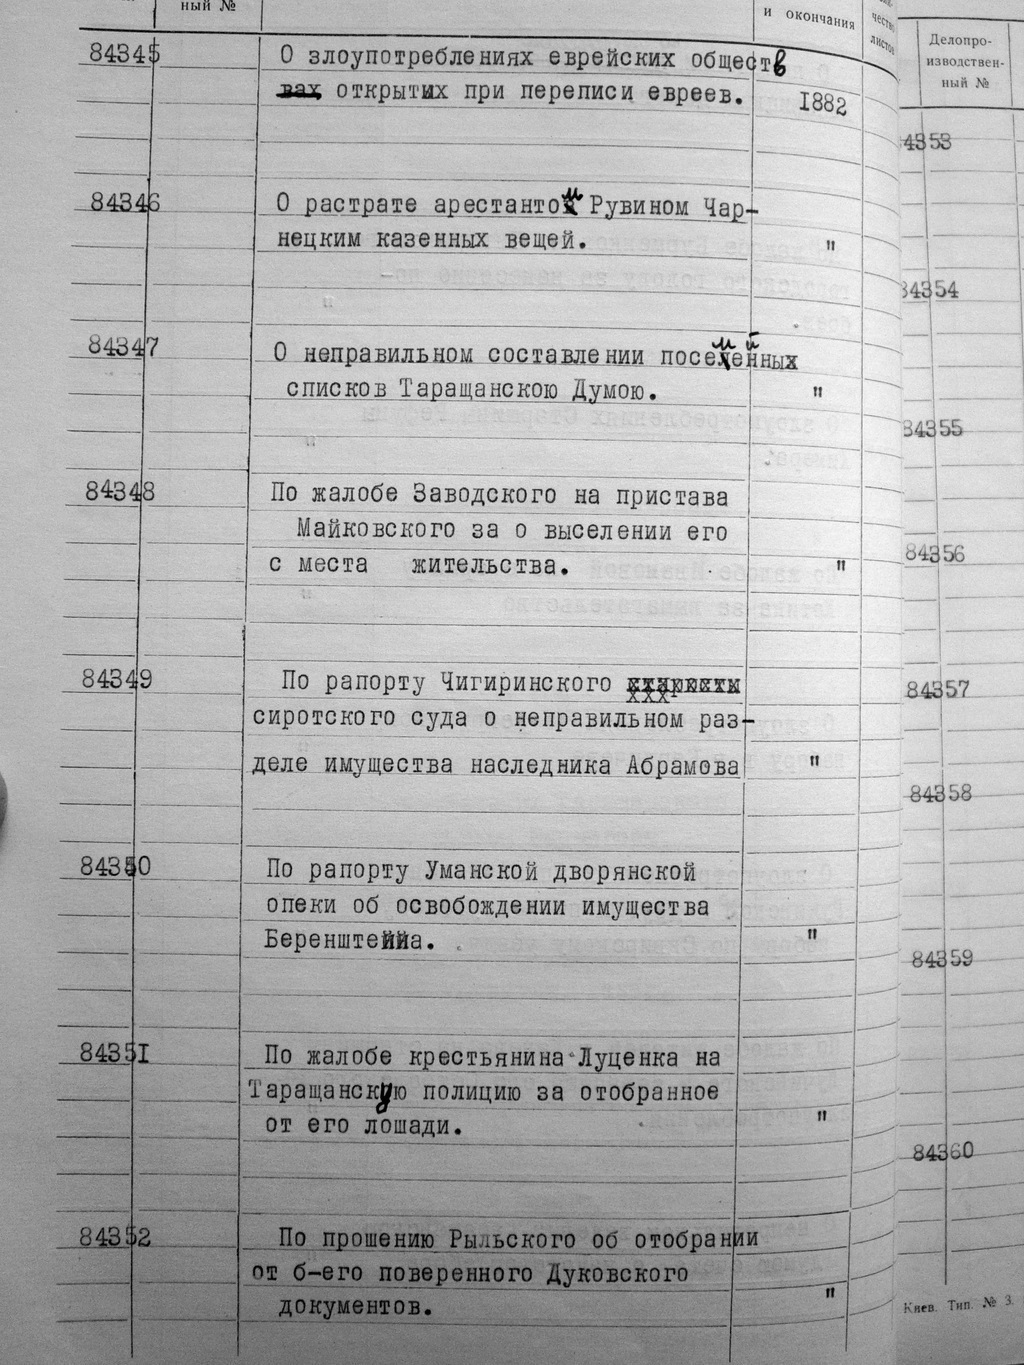 ный №
и окончания
листов
84345
О злоупотреблениях еврейских обществ
вах открытых при переписи евреев.
1882
84346
О растрате арестантом Рувином Чар-
нецким казенных вещей.
"
84347
О неправильном составлении посемейных
списков Таращанскою Думою.
"
84348
По жалобе Заводского на пристава
Майковского за о выселении его
с места жительства.
"
84349
По рапорту Чигиринского
сиротского суда о неправильном раз-
деле имущества наследника Абрамова
"
84350
По рапорту Уманской дворянской
опеки об освобождении имущества
Беренштейна.
"
84351
По жалобе крестьянина Луценка на
Таращанскую полицию за отобранное
от его лошади.
"
84352
По прошению Рыльского об отобрании
от б-его поверенного Дуковского
документов.
"
Делопро-
изводствен-
ный №
84353
84354
84355
84356
84357
84358
84359
84360
Киев. Тип. № 3.